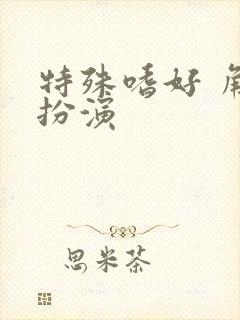 特殊嗜好 角
扮演
思米茶